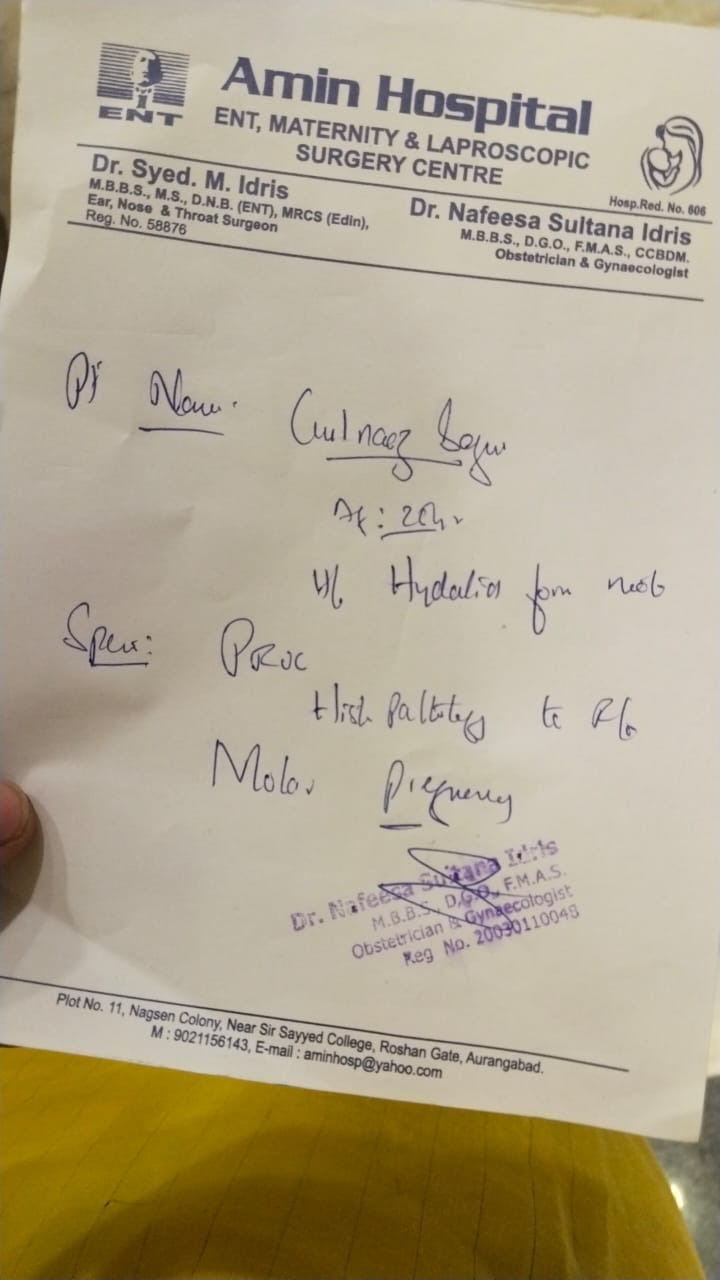 Amin Hospital
ENT
ENT, MATERNITY & LAPROSCOPIC
SURGERY CENTRE
Hosp.Red. No. 606
Dr. Syed. M. Idris
M.B.B.S., M.S., D.N.B. (ENT), MRCS (Edin),
Ear, Nose & Throat Surgeon
Reg. No. 58876
Dr. Nafeesa Sultana Idris
M.B.B.S., D.G.O., F.M.A.S., CCBDM.
Obstetrician & Gynaecologist
Pt Name:
Gulnaaz
H/o form
Spec:
to R/o
Molar Pregnancy
Dr. Nafeesa Sultana Idris
M.B.B.S., D.G.O., F.M.A.S.
Obstetrician & Gynaecologist
Reg No. 20030110048
Plot No. 11, Nagsen Colony, Near Sir Sayyed College, Roshan Gate, Aurangabad.
M : 9021156143, E-mail : aminhosp@yahoo.com